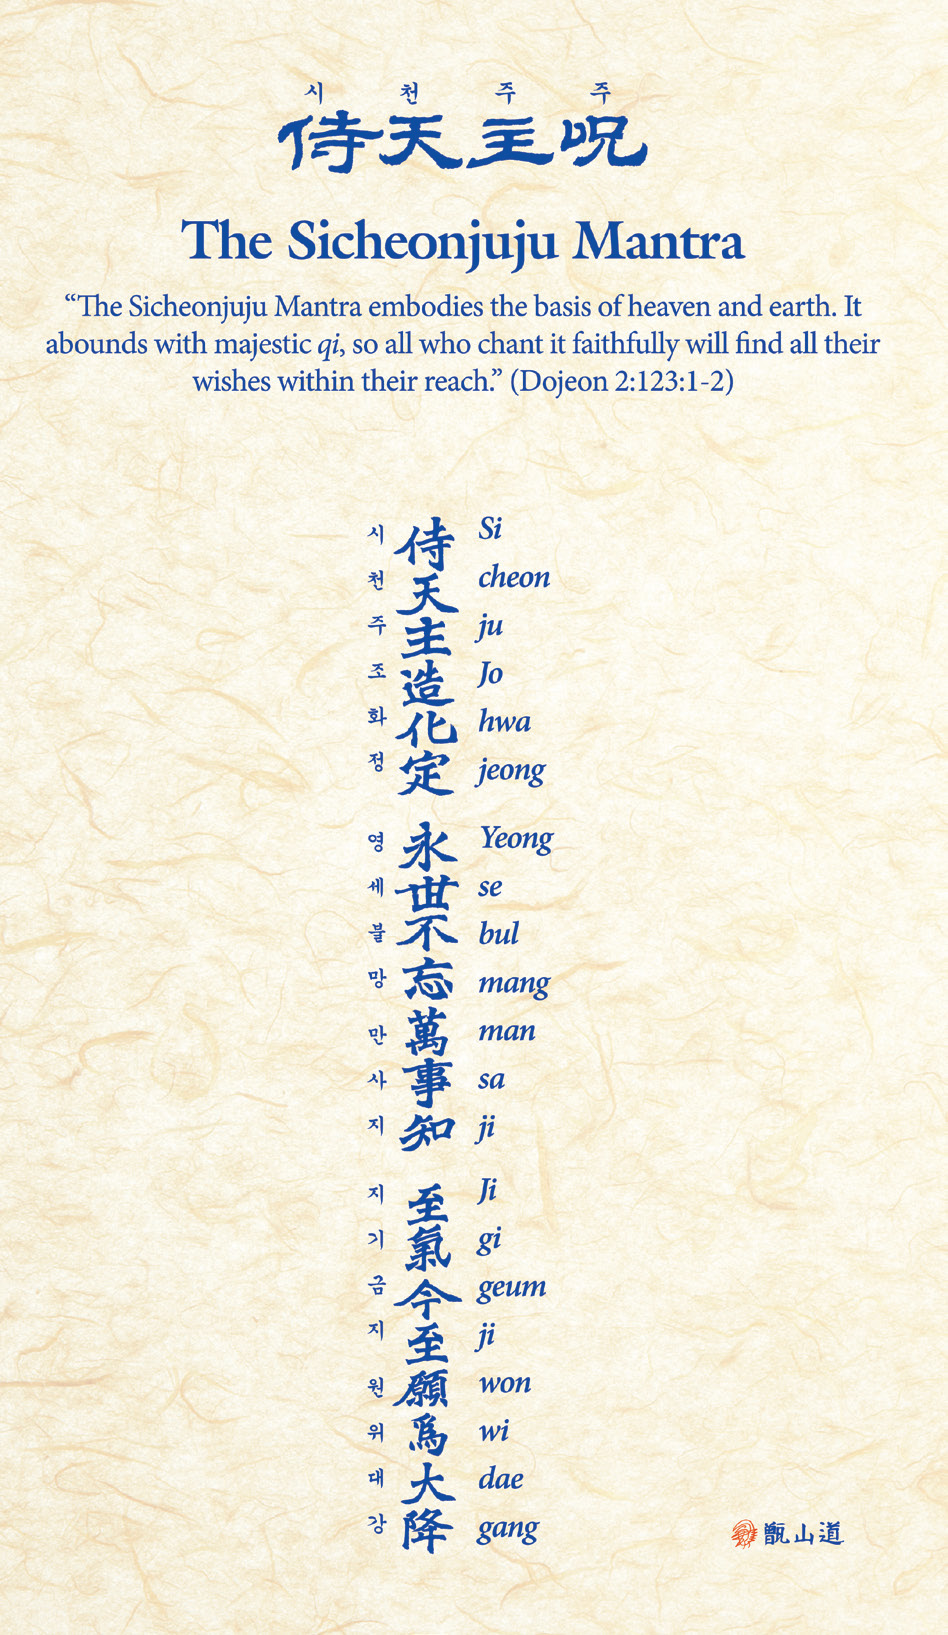 시 천 주 주
侍天主呪
The Sicheonjuju Mantra
“The Sicheonjuju Mantra embodies the basis of heaven and earth. It
abounds with majestic qi, so all who chant it faithfully will find all their
wishes within their reach.” (Dojeon 2:123:1-2)
시 侍 Si
천 天 cheon
주 主 ju
조 造 Jo
화 化 hwa
정 定 jeong
영 永 Yeong
세 世 se
불 不 bul
망 忘 mang
만 萬 man
사 事 sa
지 知 ji
지 至 Ji
기 氣 gi
금 今 geum
지 至 ji
원 願 won
위 爲 wi
대 大 dae
강 降 gang
甑山道